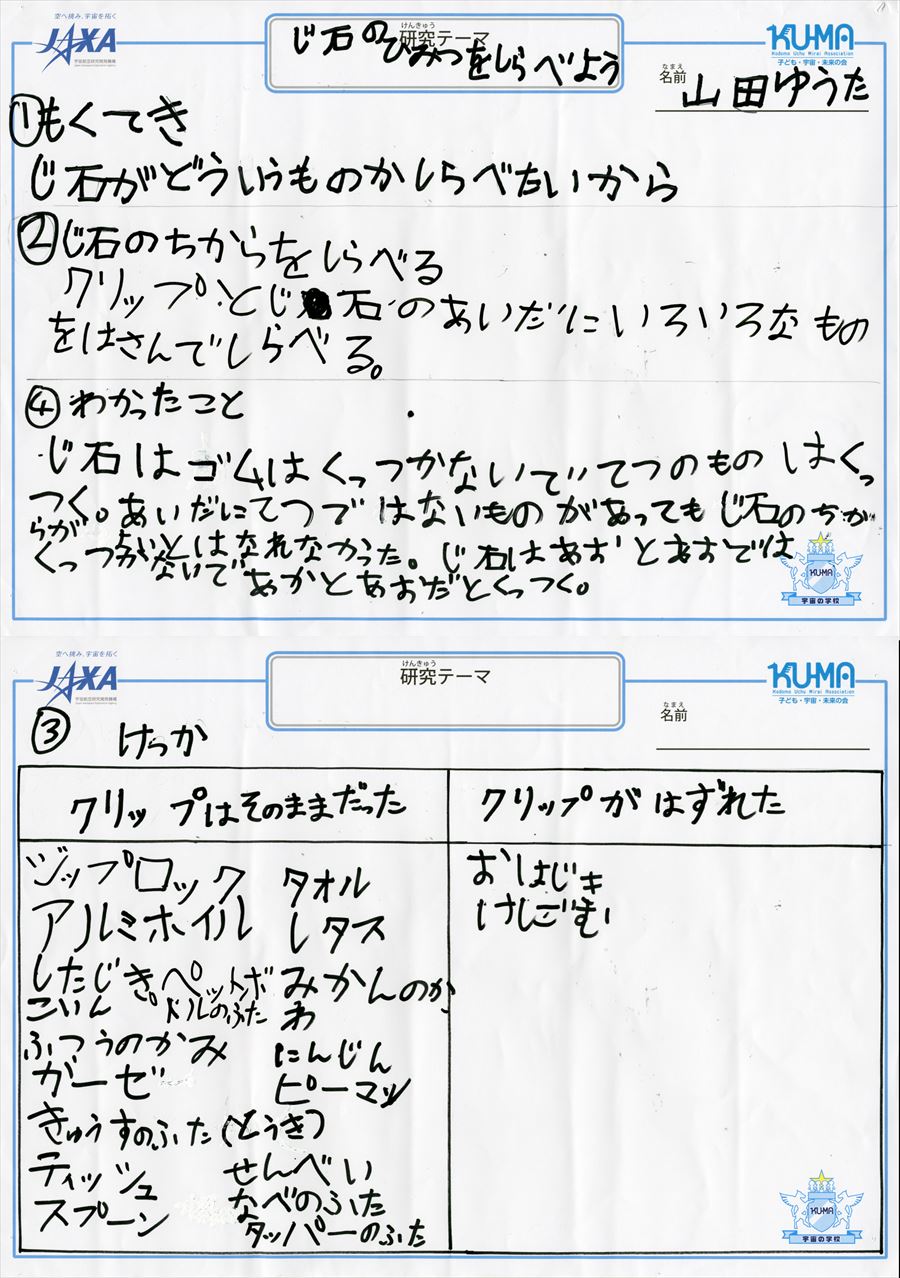 空へ挑み、宇宙を拓く
JAXA
宇宙航空研究開発機構
Japan Aerospace Exploration Agency
けんきゅう
研究テーマ
じ石のひみつをしらべよう
KUMA
Kodomo Uchu Mirai Association
子ども・宇宙・未来の会
なまえ
名前 山田ゆうた
①もくてき
じ石がどういうものかしらべたいから
②じ石のちからをしらべる
クリップとじ石のあいだにいろいろなもの
をはさんでしらべる。
④わかったこと
じ石はゴムはくっつかないでてつのものはくっ
つく。あいだにてつではないものがあってもじ石のちか
らがよいとはなれなかった。じ石はあおとあおでは
くっつかないであかとあおだとくっつく。
KUMA
宇宙の学校
空へ挑み、宇宙を拓く
JAXA
宇宙航空研究開発機構
Japan Aerospace Exploration Agency
けんきゅう
研究テーマ
KUMA
Kodomo Uchu Mirai Association
子ども・宇宙・未来の会
なまえ
名前
③ けっか
クリップはそのままだった
クリップがはずれた
ジップロック タオル
アルミホイル レタス
したじき ペットボ みかんのか
こいん トルのふた わ
ふつうのかみ にんじん
ガーゼ ピーマン
きゅうすのふた(とうき)
ティッシュ せんべい
スプーン なべのふた
タッパーのふた
おはじき
けしごむ
KUMA
宇宙の学校